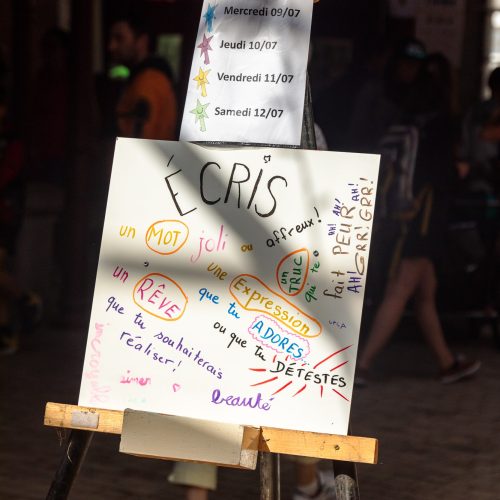 Mercredi 09/07
Jeudi 10/07
Vendredi 11/07
Samedi 12/07
ÉCRIS
un MOT joli ou affreux !
un TRUC que te fait PEUR
AH! AH! AH!
AH! GRR! GRR!
un RÊVE que tu souhaiterais réaliser !
une Expression que tu ADORES
ou que tu DÉTESTES
incroyable
aimer
beauté